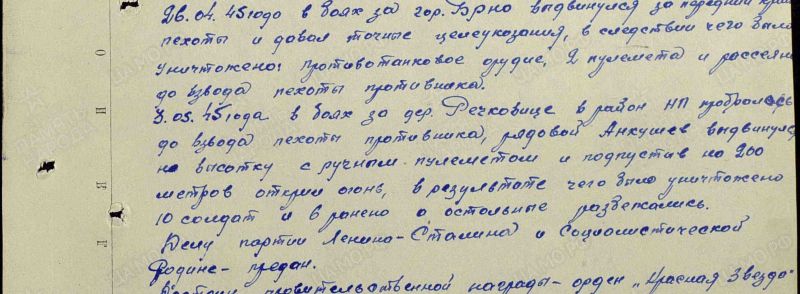 26.04.45 года в боях за гор. Брно выдвинулся за передний край
пехоты и давал точные целеуказания, в следствии чего было
уничтожено: противотанковое орудие, 2 пулемета и рассеяно
до взвода пехоты противника.
3.05.45 года в боях за дер. Речковице в район НП пробралось
до взвода пехоты противника, рядовой Анкушев выдвинулся
на высотку с ручным пулеметом и подпустив на 200
метров открыл огонь, в результате чего было уничтожено
10 солдат и 6 ранено а остольные разбежались.
Делу партии Ленина-Сталина и Социалистической
Родине- предан.
Достоин правительственной награды- орден "Красная Звезда"